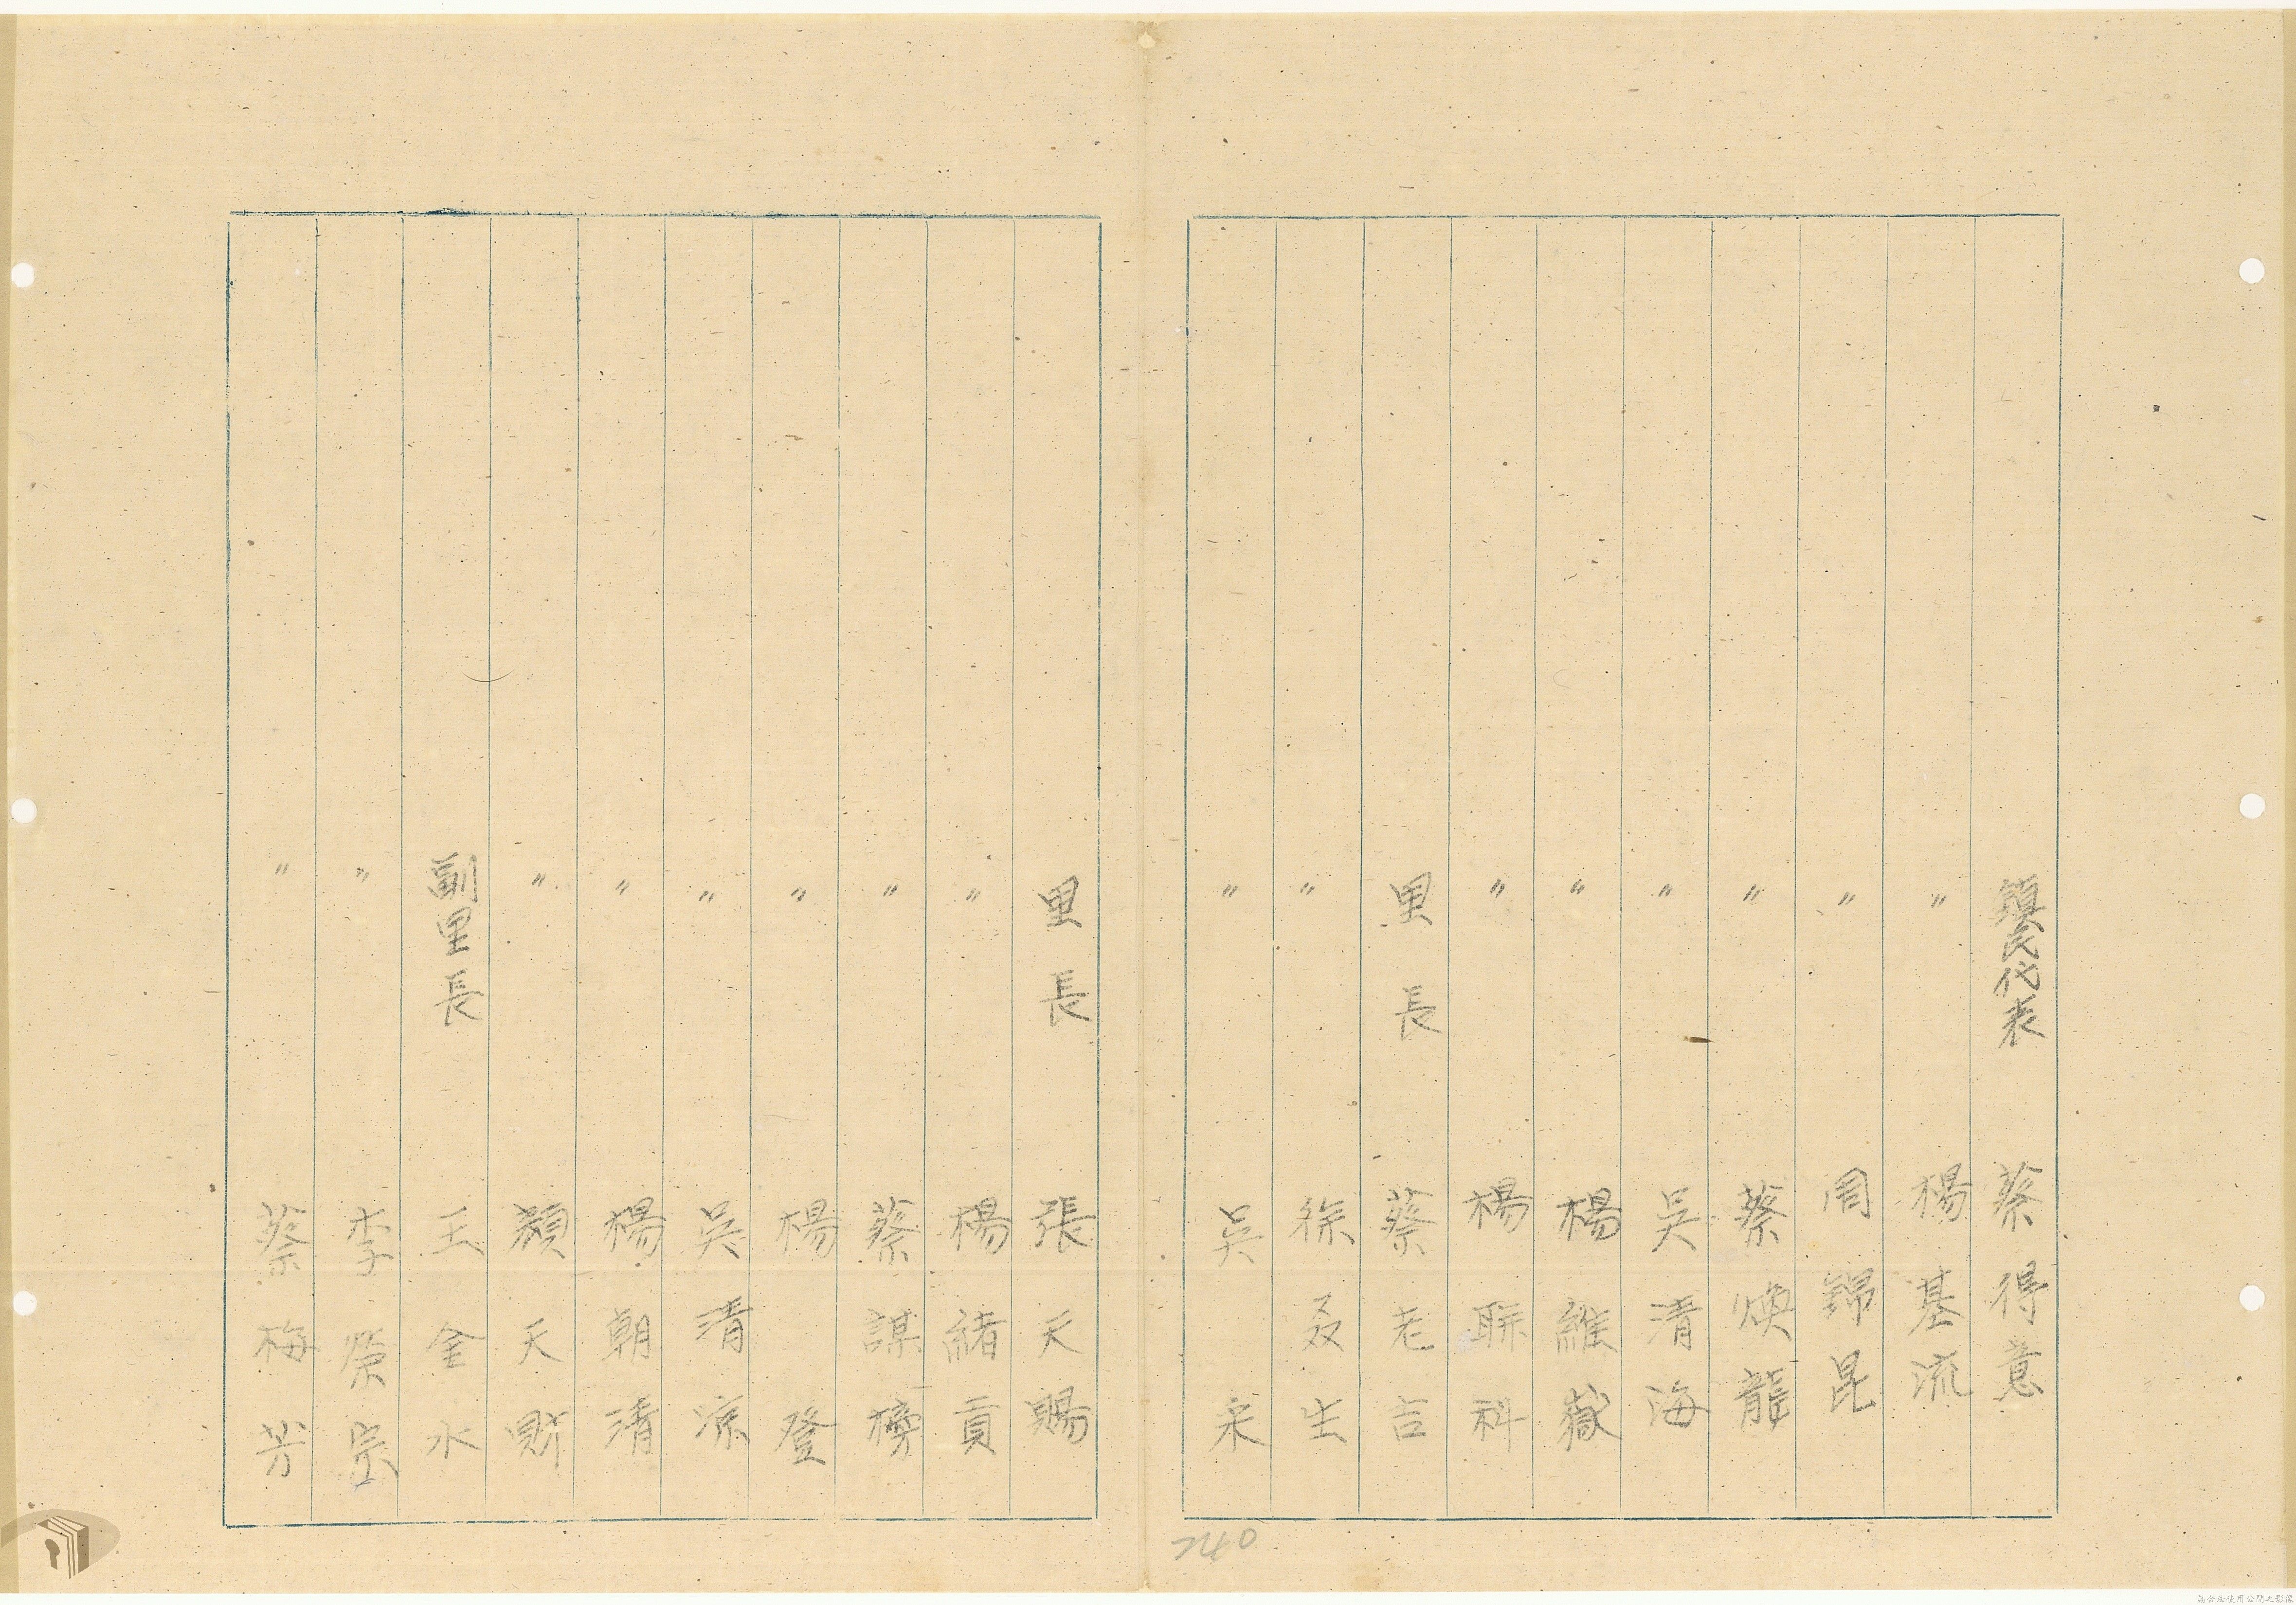 鎮民代表 蔡得意
〃 楊基流
〃 周錦昆
〃 蔡煥龍
〃 吳清海
〃 楊維嶽
〃 楊聯科
里長 蔡老吉
〃 徐 生
〃 吳 來
里長 張天賜
〃 楊緒貢
〃 蔡謀
〃 楊 登
〃 吳清涼
〃 楊朝清
〃 顏天財
副里長 王金水
〃 李榮宗
〃 蔡梅芳
240
請合法使用公開之影像